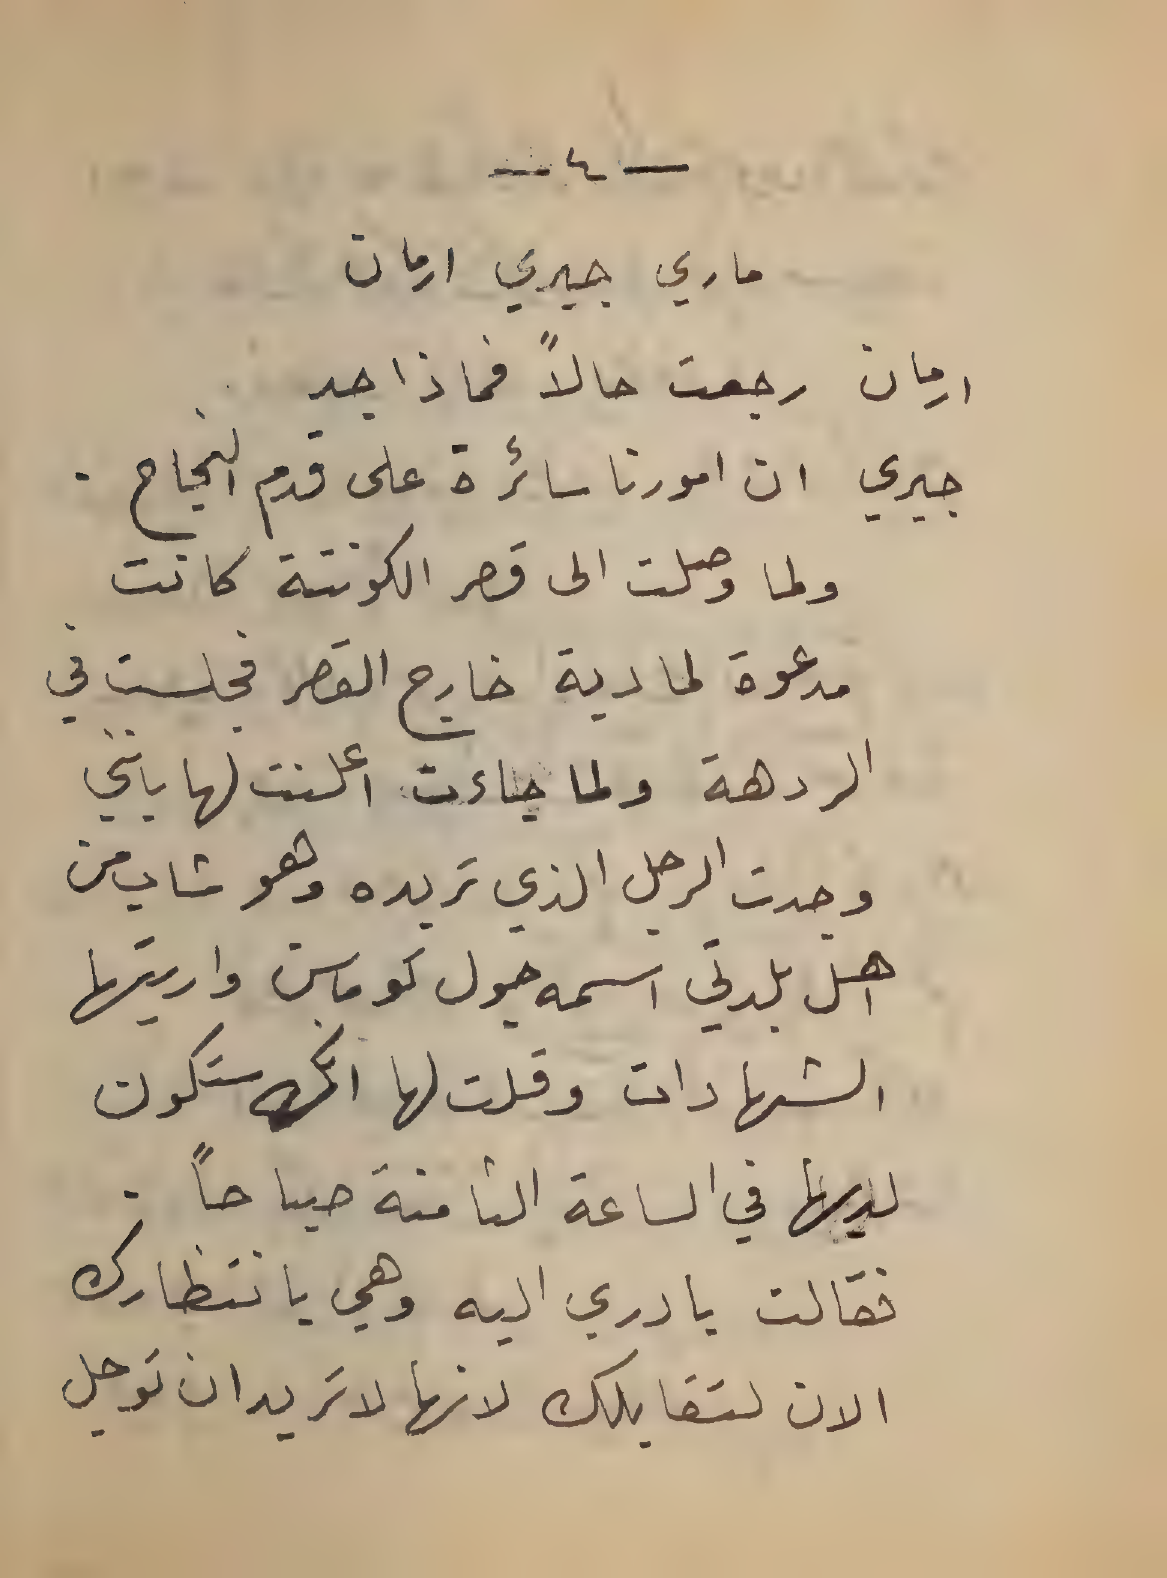 — ٤ —
ماري جيري ارمان
ارمان رجعت حالاً فماذا جرى
جيري ان امورنا سائرة على قدم النجاح .
ولما وصلت الى قصر الكونتة كانت
مدعوة لمادبة خارج القصر فجلست في
الردهة ولما جاءت اعلنت لها بانني
وجدت الرجل الذي تريده وهو شاب من
اهل بلدتي اسمه جول كوماس واريتها
الشهادات وقلت لها انك ستكون
لديها في الساعة الثامنة صباحاً .
فقالت بادري اليه وهي بانتظارك
الان لتقابلك لانها لا تريد ان توجل